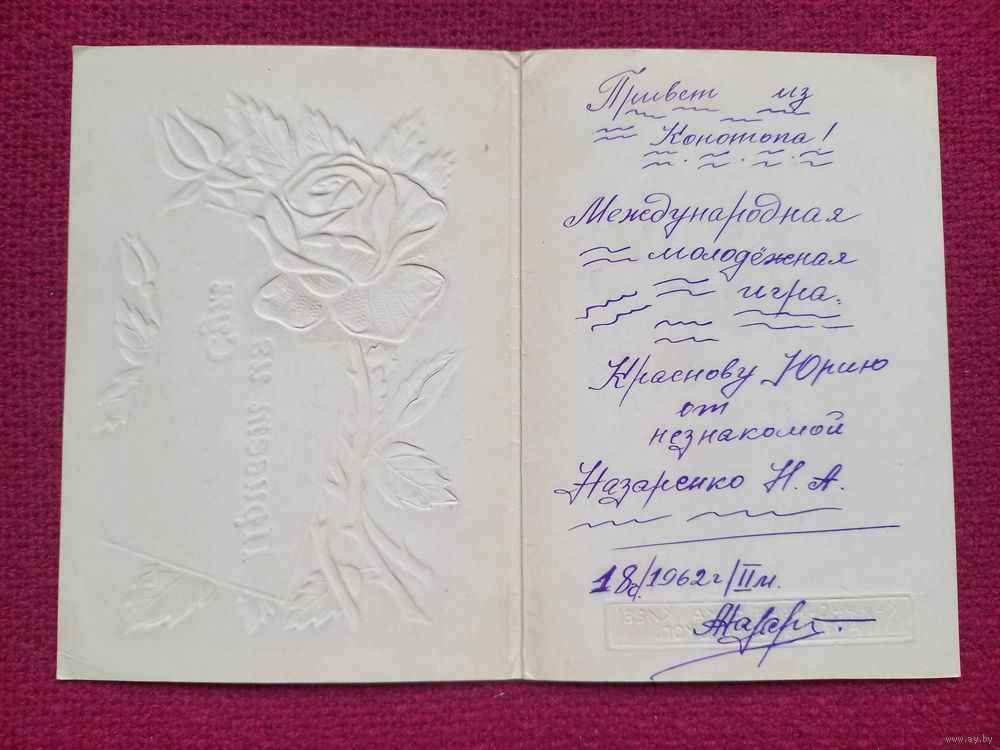 Привет из
Конотопа!
Международная
молодёжная
игра.
Краснову Юрию
от
незнакомой
Назаренко Н. А.
18/1962г/II м.
www.ay.by